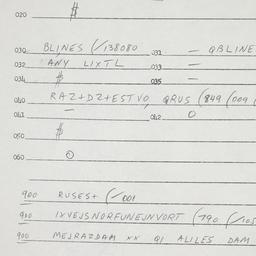 020 $
030 BLINES (/138080 031 — QBLINE
032 ANY LIXTL 033 —
034 $ 035 —
040 RAZ+DZ+ESTVO, QRUS (849 (009 (
041 — 042 O
050 $
060 O
900 RUSES+ (/001
910 IXVEJSNORFUNEJNVORT (790 (/105
900 MEJRAZDAM XX QI ALILES DAM